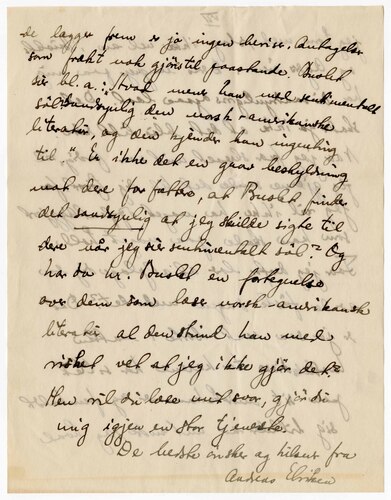 IV
de lægger frem er jo ingen beviser. Antagelser
som frækt nok gjøres til paastande. Buslet
sier bl. a.: "Hvad mener han med sentimentalt
søl? Sandsynlig den norsk-amerikanske
literatur, og den kjender han ingenting
til." Er ikke det en grov beskyldning
mot dere forfattere, at Buslet finder
det sandsynlig at jeg skulde sigte til
dere når jeg sier sentimentalt søl? Og
har da hr. Buslet en fortegnelse
over dem som læser norsk-amerikansk
literatur al den stund han med
vet at jeg ikke gjør det?
Men vil du læse mit svar, gjør du
mig igjen en stor tjeneste.
De bedste ønsker og hilsner fra
Andreas